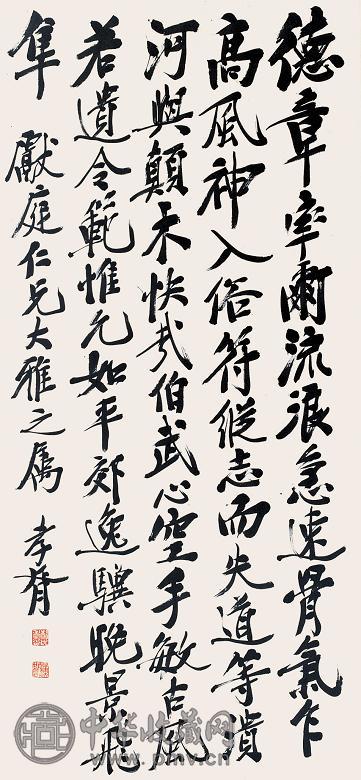 德章率爾流浪急速骨氣乍
高風神入俗符縱志而失道等潰
河與顛木快哉伯武心空手敏古風
若遺令範惟允如平郊逸驥晚景飛
隼
獻庭仁兄大雅之屬
孝胥
中华收藏网
www.pmv.cn